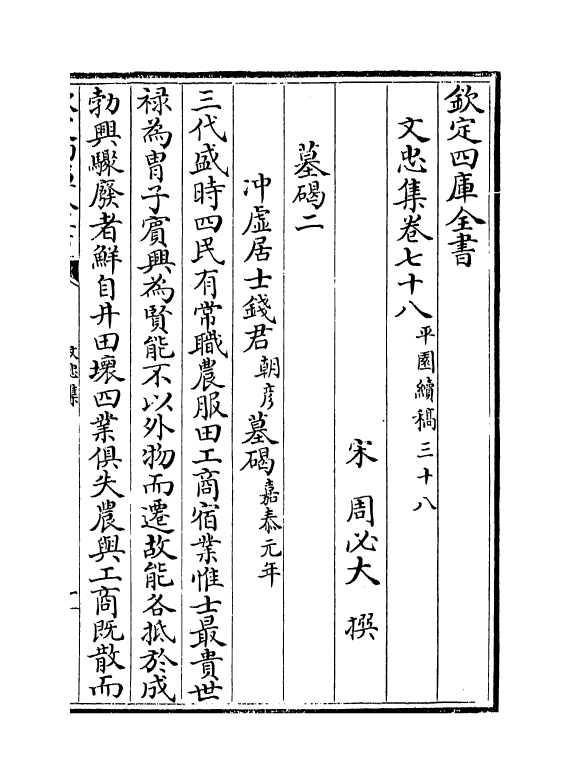 欽定四庫全書
文忠集卷七十八 平園續稿三十八
宋 周必大 撰
墓碣二
冲虛居士錢君朝彥墓碣嘉泰元年
三代盛時四民有常職農服田工商宿業惟士最貴世
禄為胄子賓興為賢能不以外物而遷故能各抵於成
勃興驟廢者鮮自井田壞四業俱失農與工商既散而
文忠集